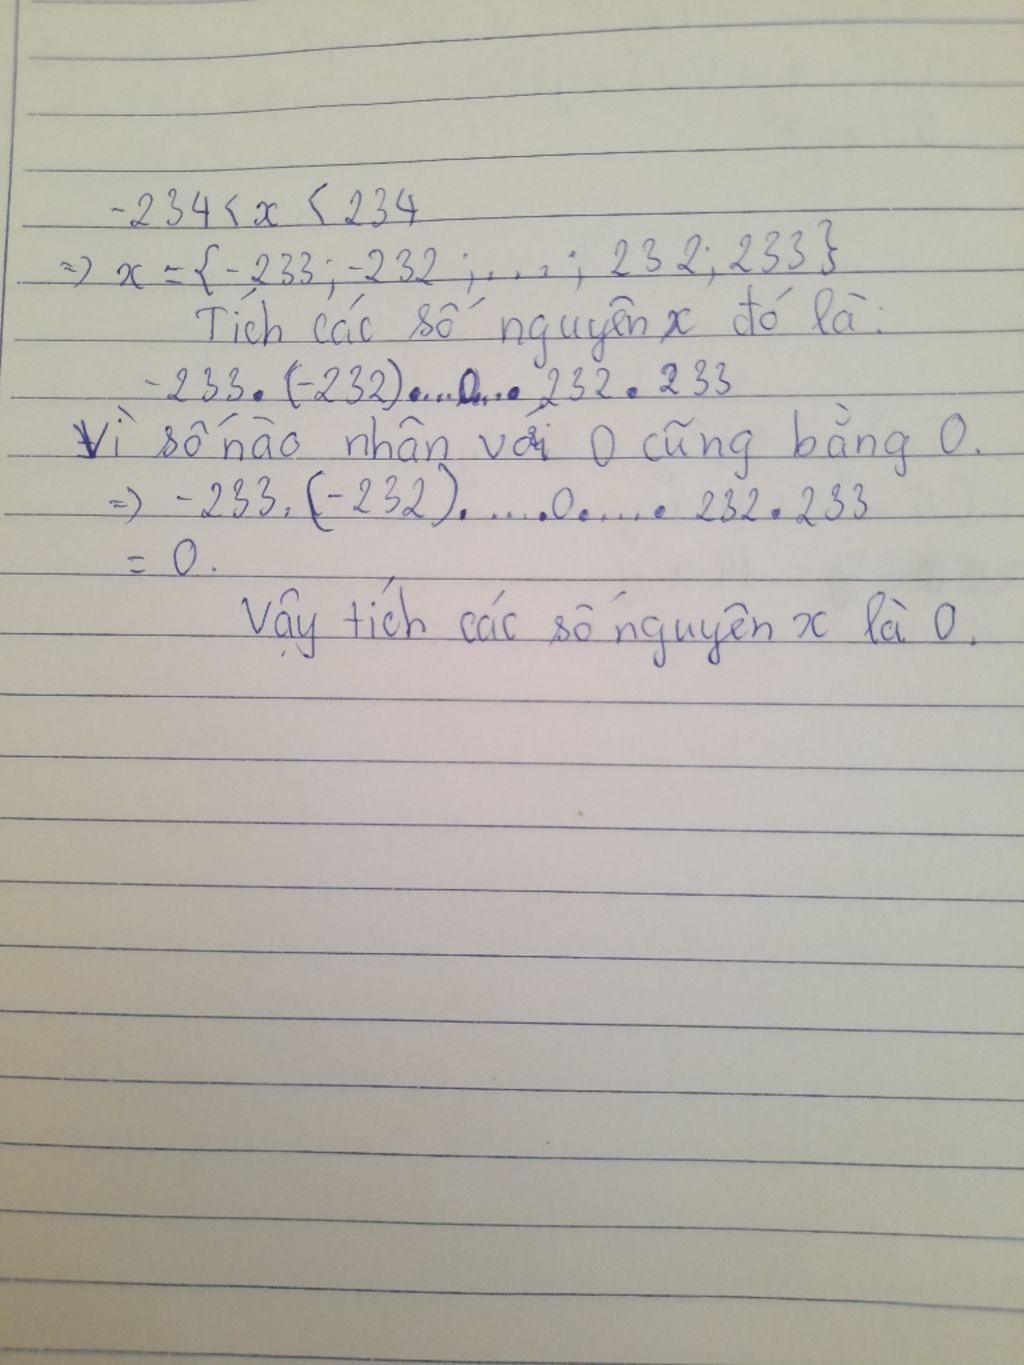 -234 < x < 234
=> x = {-233; -232; ....; 232; 233}
Tích các số nguyên x đó là:
-233.(-232)....0.... 232.233
Vì số nào nhân với 0 cũng bằng 0.
=> -233.(-232).....0..... 232.233
= 0.
Vậy tích các số nguyên x là 0.